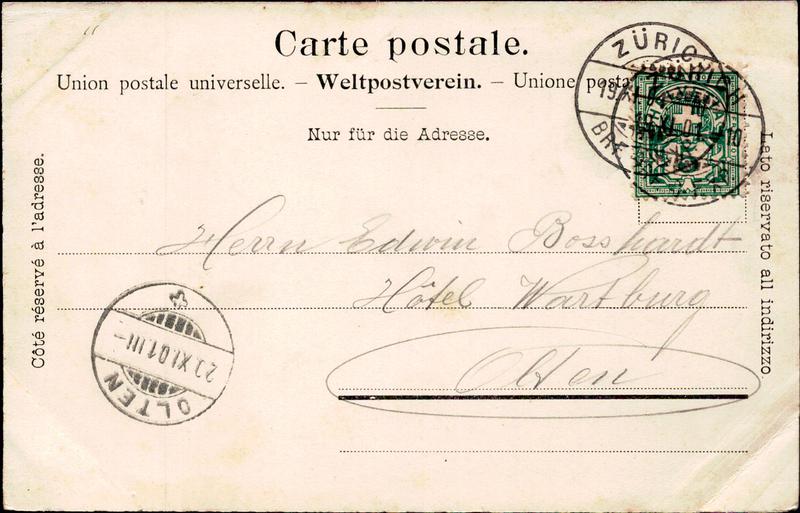 Carte postale.
Union postale universelle. – Weltpostverein. – Unione posta
Nur für die Adresse.
Côté réservé à l'adresse.
Lato riservato all indirizzo.
Herrn Edwin Bosshardt
Hôtel Wartburg
Olten
ZÜRICH
OLTEN
20.XI.01.III